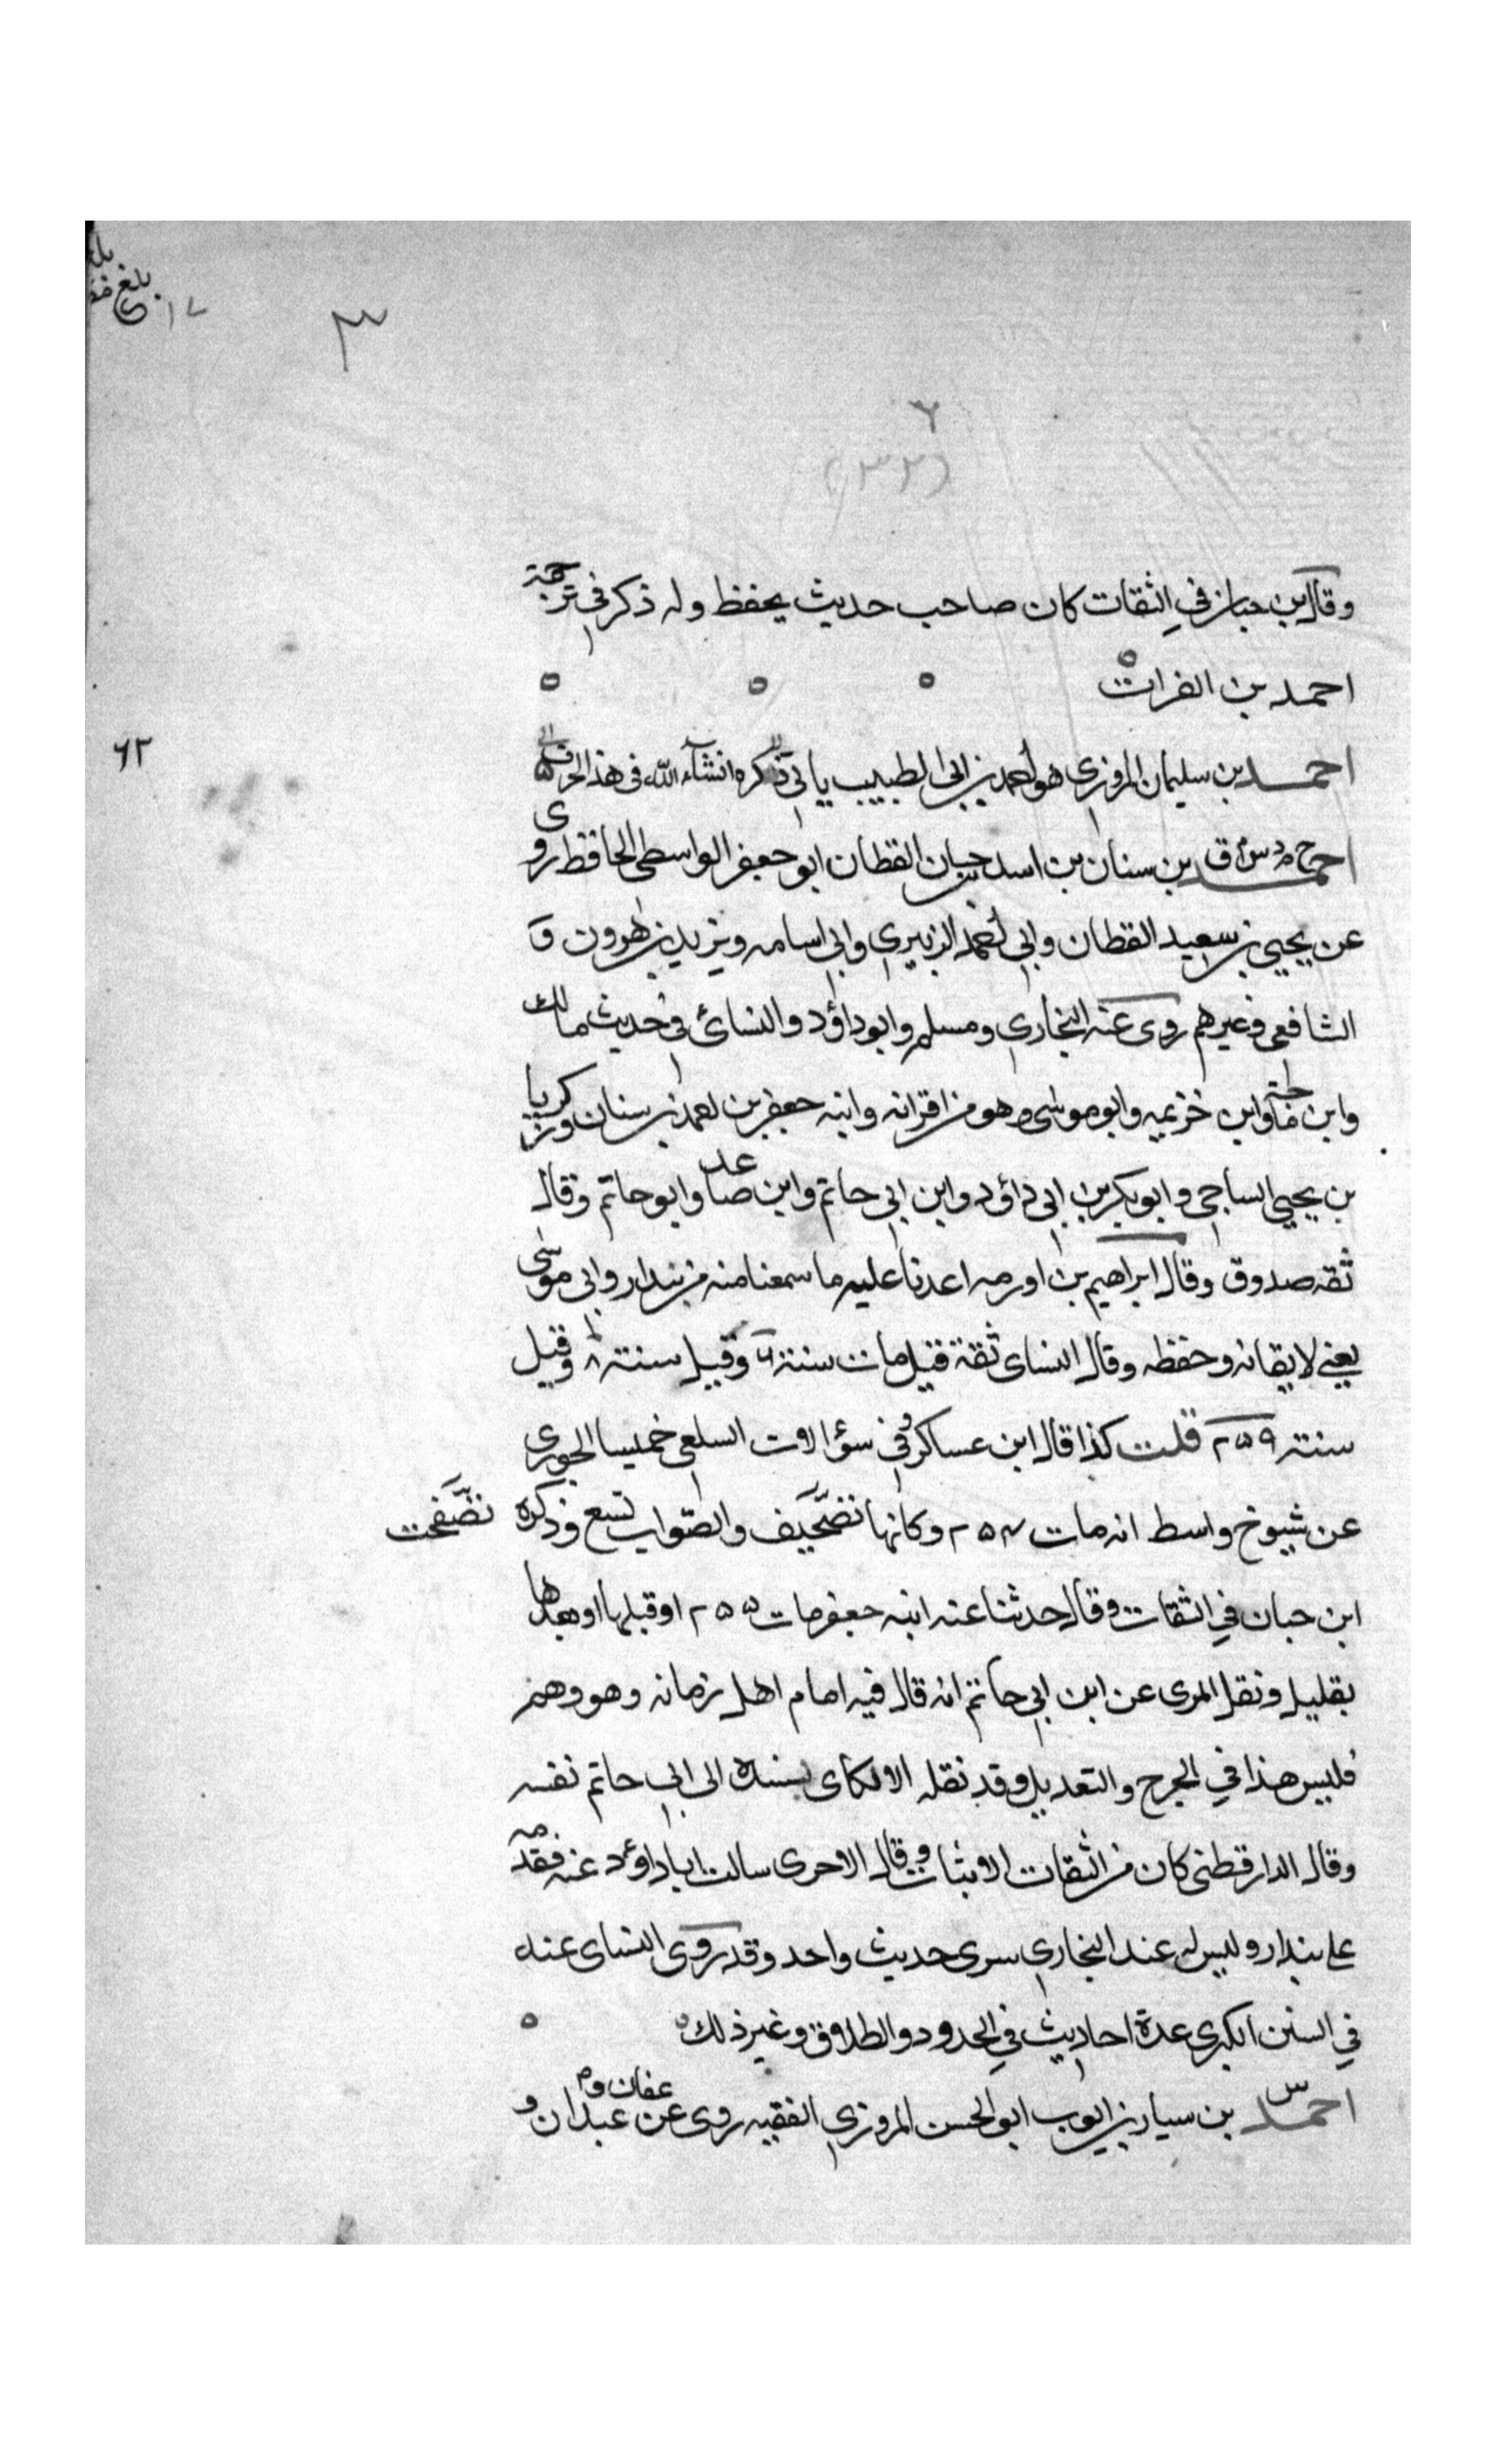 بلغ
١٢
٣
٦
(٣٣)
وقال ابن حبان في الثقات كان صاحب حديث يحفظ وله ذكر في ترجمة
احمد بن الفرات ه ه ه ه
٦٢
احمد بن سليمان المروزي هو احمد بن ابي الطيب ياتي ذكره انشاء الله في هذا الحرف
احمد خ م د س ق بن سنان بن اسد بن حبان القطان ابو جعفر الواسطي الحافظ روى
عن يحيي بن سعيد القطان وابي احمد الزبيري وابي اسامه ويزيد بن هرون و
الشافعي وغيرهم روى عنه البخاري ومسلم وابو داؤد والنسائ في حديث مالك
وابن ماجة وابن خزيمه وابو موسى وهو من اقرانه وابنه جعفر بن احمد بن سنان وزكريا
بن يحيي الساجي وابو بكر بن ابي داؤد وابن ابي حاتم وابن صاعد وابو حاتم وقال
ثقه صدوق وقال ابراهيم بن اورمه اعدنا عليه ما سمعنا منه من بندار وابي موسى
يعني لايقانه وحفظه وقال النساى ثقة قيل مات سنة ٦ وقيل سنة ٨ وقيل
سنة ٢٥٩ قلت كذا قال ابن عساكر وفي سؤالات السلعي خميسا الجوزي
عن شيوخ واسط انه مات ٢٥٤ وكانها تضحيف والصواب تسع وذكره
تضحفت
ابن حبان في الثقات وقال حدثنا عنه ابنه جعفر مات ٢٥٥ او قبلها او بعدها
بقليل ونقل المري عن ابن ابي حاتم انه قال فيه امام اهل زمانه وهو وهم
فليس هذا في الجرح والتعديل وقد نقله الالكاى بسنده الى ابي حاتم نفسه
وقال الدارقطني كان من الثقات الاثبات وقال الاجري سالت ابا داؤد عنه فقدمه
على بندار وليس له عند البخاري سوى حديث واحد وقد روى النساى عنه
في السنن الكبرى عدة احاديث في الحدود والطلاق وغير ذلك ه ه
احمد س بن سيار بن ايوب ابو الحسن المروزي الفقيه روى عن عفان و عبدان و